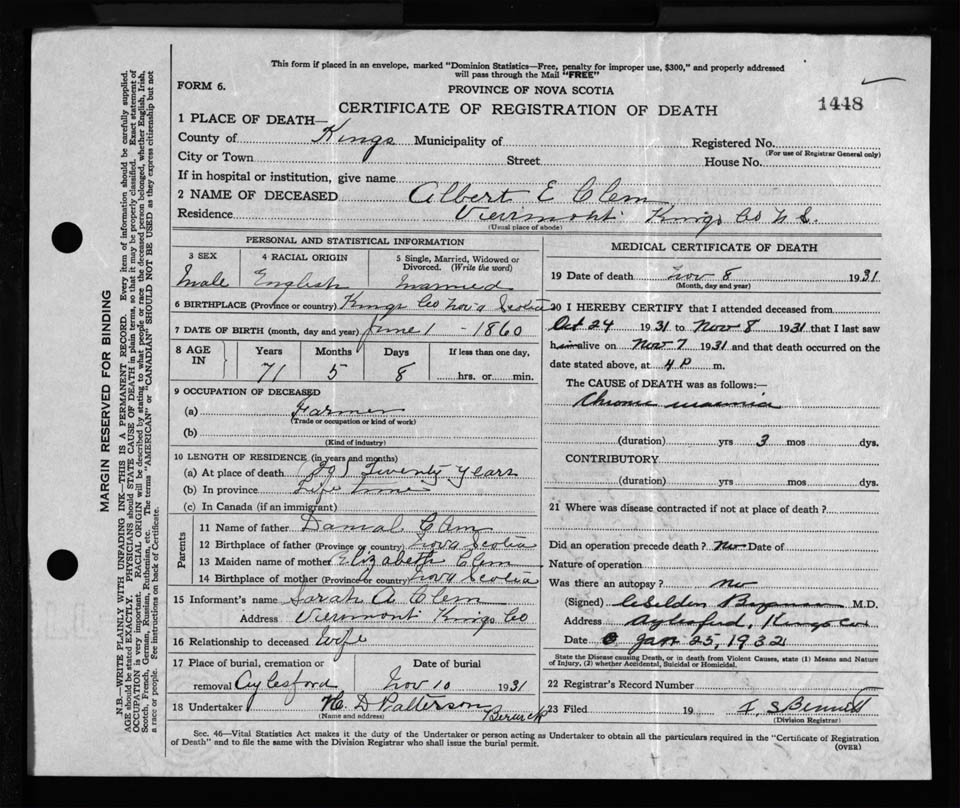 This form if placed in an envelope, marked "Dominion Statistics—Free, penalty for improper use, $300," and properly addressed
will pass through the Mail "FREE"
FORM 6.
PROVINCE OF NOVA SCOTIA
CERTIFICATE OF REGISTRATION OF DEATH
1448
1 PLACE OF DEATH—
County of Kings Municipality of Registered No.
(For use of Registrar General only)
City or Town Street House No.
If in hospital or institution, give name
2 NAME OF DECEASED Albert E Clem
Residence Viewmont Kings Co N.S.
(Usual place of abode)
PERSONAL AND STATISTICAL INFORMATION
3 SEX 4 RACIAL ORIGIN 5 Single, Married, Widowed or
Divorced. (Write the word)
Male English Married
6 BIRTHPLACE (Province or country) Kings Co Nova Scotia
7 DATE OF BIRTH (month, day and year) June 1 - 1860
8 AGE IN Years Months Days If less than one day,
71 5 8 hrs. or min.
9 OCCUPATION OF DECEASED
(a) Farmer
(Trade or occupation or kind of work)
(b)
(Kind of industry)
10 LENGTH OF RESIDENCE (in years and months)
(a) At place of death (20) Twenty years
(b) In province Life time
(c) In Canada (if an immigrant)
Parents
11 Name of father Danial Clem
12 Birthplace of father (Province or country) Nova Scotia
13 Maiden name of mother Elizabeth Clem
14 Birthplace of mother (Province or country) Nova Scotia
15 Informant's name Sarah A. Clem
Address Viewmont Kings Co
16 Relationship to deceased Wife
17 Place of burial, cremation or Date of burial
removal Aylesford Nov 10 1931
18 Undertaker H. D Patterson
(Name and address) Berwick
MEDICAL CERTIFICATE OF DEATH
19 Date of death Nov 8 1931
(Month, day and year)
20 I HEREBY CERTIFY that I attended deceased from
Oct 24 1931 to Nov 8 1931 that I last saw
him alive on Nov 7 1931 and that death occurred on the
date stated above, at 4 P m.
The CAUSE of DEATH was as follows:—
Chronic uraemia
(duration) yrs 3 mos dys.
CONTRIBUTORY
(duration) yrs mos dys.
21 Where was disease contracted if not at place of death?
Did an operation precede death? No Date of
Nature of operation
Was there an autopsy? no
(Signed) M.D.
Address Aylesford, Kings Co
Date Jan 25, 1932
State the Disease causing Death, or in death from Violent Causes, state (1) Means and Nature
of Injury, (2) whether Accidental, Suicidal or Homicidal.
22 Registrar's Record Number
23 Filed 19 Bennett
(Division Registrar)
Sec. 46—Vital Statistics Act makes it the duty of the Undertaker or person acting as Undertaker to obtain all the particulars required in the "Certificate of Registration
of Death" and to file the same with the Division Registrar who shall issue the burial permit.
(OVER)
MARGIN RESERVED FOR BINDING
N.B.—WRITE PLAINLY WITH UNFADING INK—THIS IS A PERMANENT RECORD. Every item of information should be carefully supplied.
AGE should be stated EXACTLY. PHYSICIANS should STATE CAUSE OF DEATH in plain terms, so that it may be properly classified. Exact statement of
OCCUPATION is very important. RACIAL ORIGIN will be described by stating to what people or race the deceased person belonged, whether English, Irish,
Scotch, French, German, Russian, Ruthenian, etc. The terms "AMERICAN" or "CANADIAN" SHOULD NOT BE USED as they express citizenship but not
a race or people. See instructions on back of Certificate.